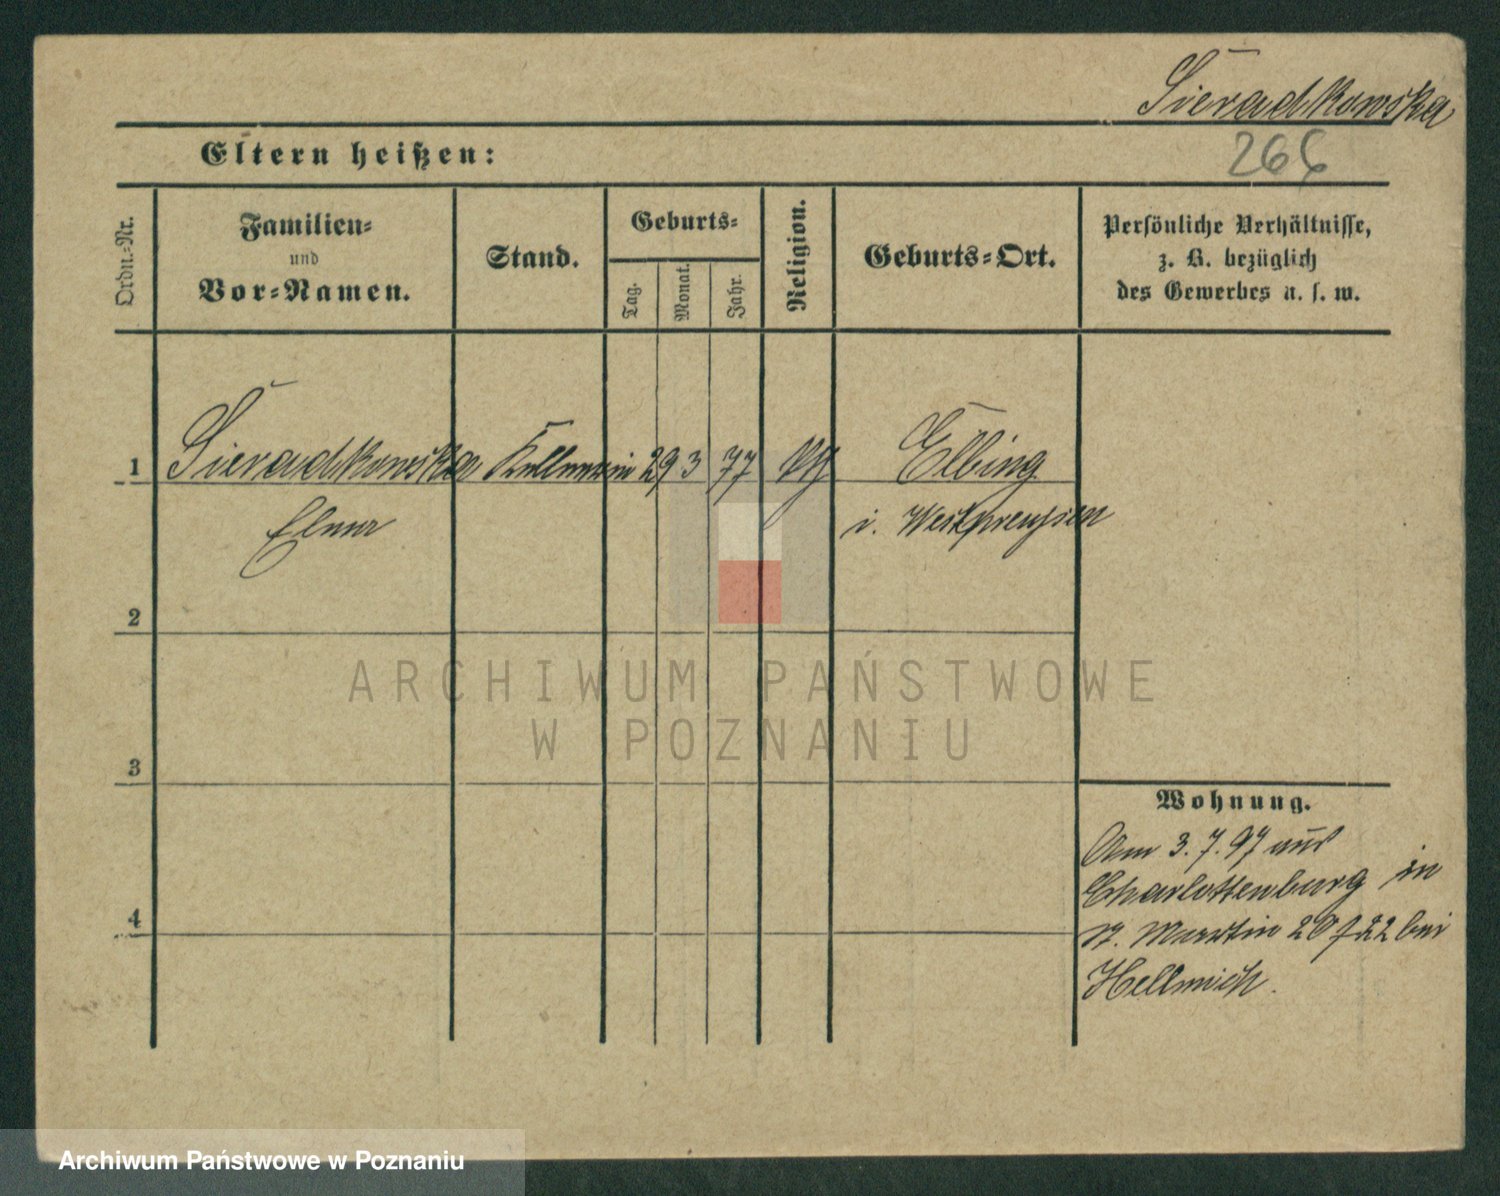 Sieradkowska
266
Eltern heißen:
Ordn.-Nr.
Familien-
und
Vor-Namen.
Stand.
Geburts-
Tag.
Monat.
Jahr.
Religion.
Geburts-Ort.
Persönliche Verhältnisse,
z. B. bezüglich
des Gewerbes u. s. w.
1 Sieradkowska Kellnerin 29 3 77 Elbing
i. Westpreussen
2
3
4
Wohnung.
Am 3. 7. 97 aus
Charlottenburg in
St. Martin 20 bei
Hellmich.
ARCHIWUM PAŃSTWOWE
W POZNANIU
Archiwum Państwowe w Poznaniu